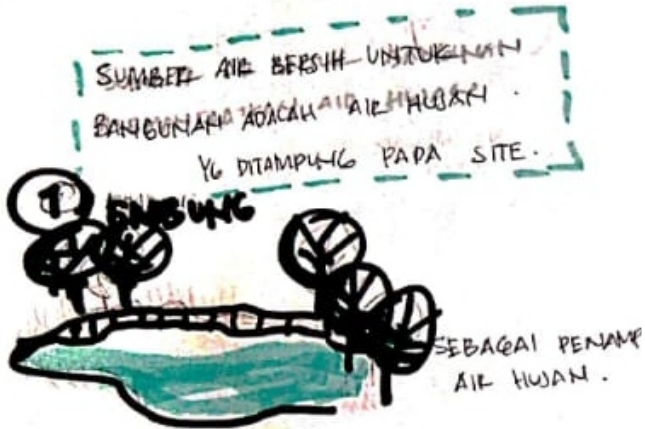 SUMBER AIR BERSIH UNTUK
BANGUNAN ADALAH AIR HUJAN.
YG DITAMPUNG PADA SITE.
1 EMBUNG
SEBAGAI PENAMP
AIR HUJAN.